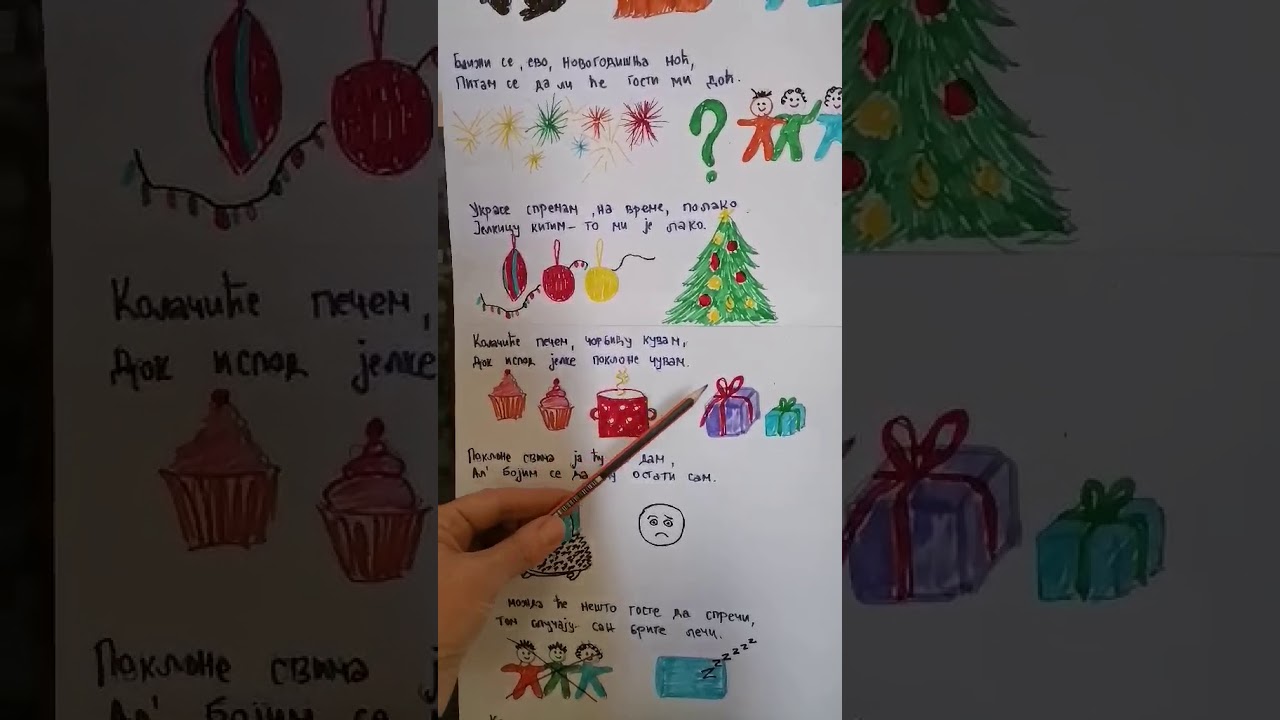 Ближи се, ево, новогодишња ноћ,
Питам се да ли ће гости ми доћ.
?
Украсе спремам, на време, полако
Јелкицу китим - то ми је лако.
Колачиће печем, чорбицу кувам,
Док испод јелке поклоне чувам.
Поклоне свима ја ћу дам,
Ал' бојим се да остати сам.
можда ће нешто госте да спречи,
том случају - сан бриге лечи.
zzzzzzz
Колачиће печем,
Док испод јелке
Поклоне свима ј
Ал' бојим се